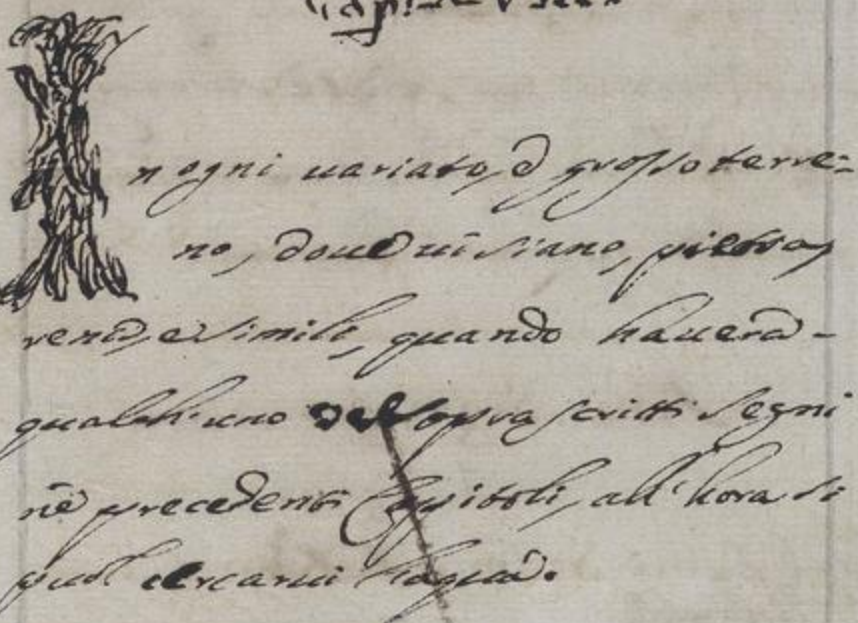 In ogni uariato, è grosso terre=
no, doue ui siano, pietra,
rena, e simili, quando hauerà -
qualch'uno de sopra scritti segni
nè precedenti Capitoli, all'hora si
può cercarui l'aqua.